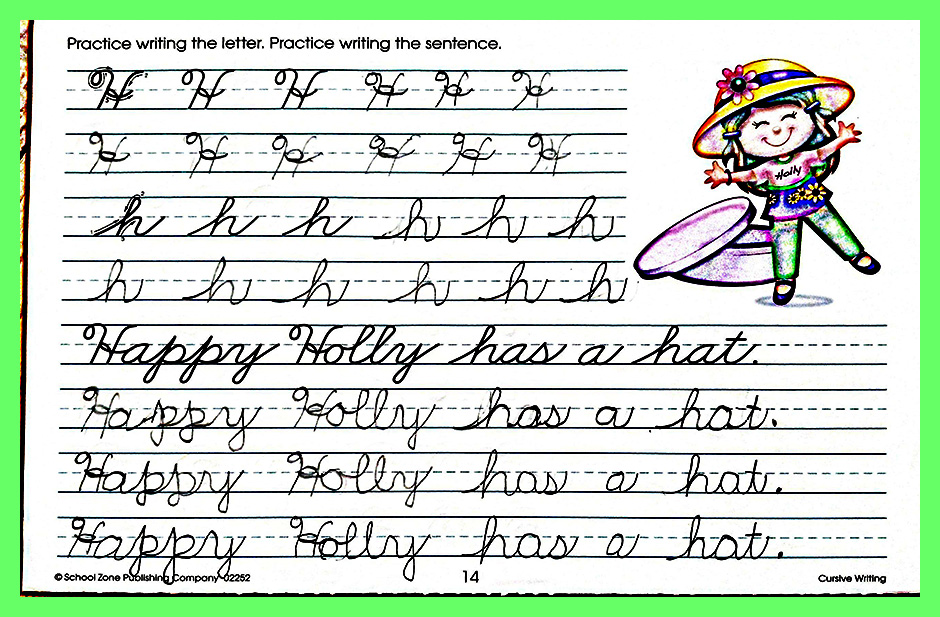 Practice writing the letter. Practice writing the sentence.
H H H H H H
H H H H H H
h h h h h h
h h h h h h
Holly
Happy Holly has a hat.
Happy Holly has a hat.
Happy Holly has a hat.
Happy Holly has a hat.
© School Zone Publishing Company 02252 14 Cursive Writing